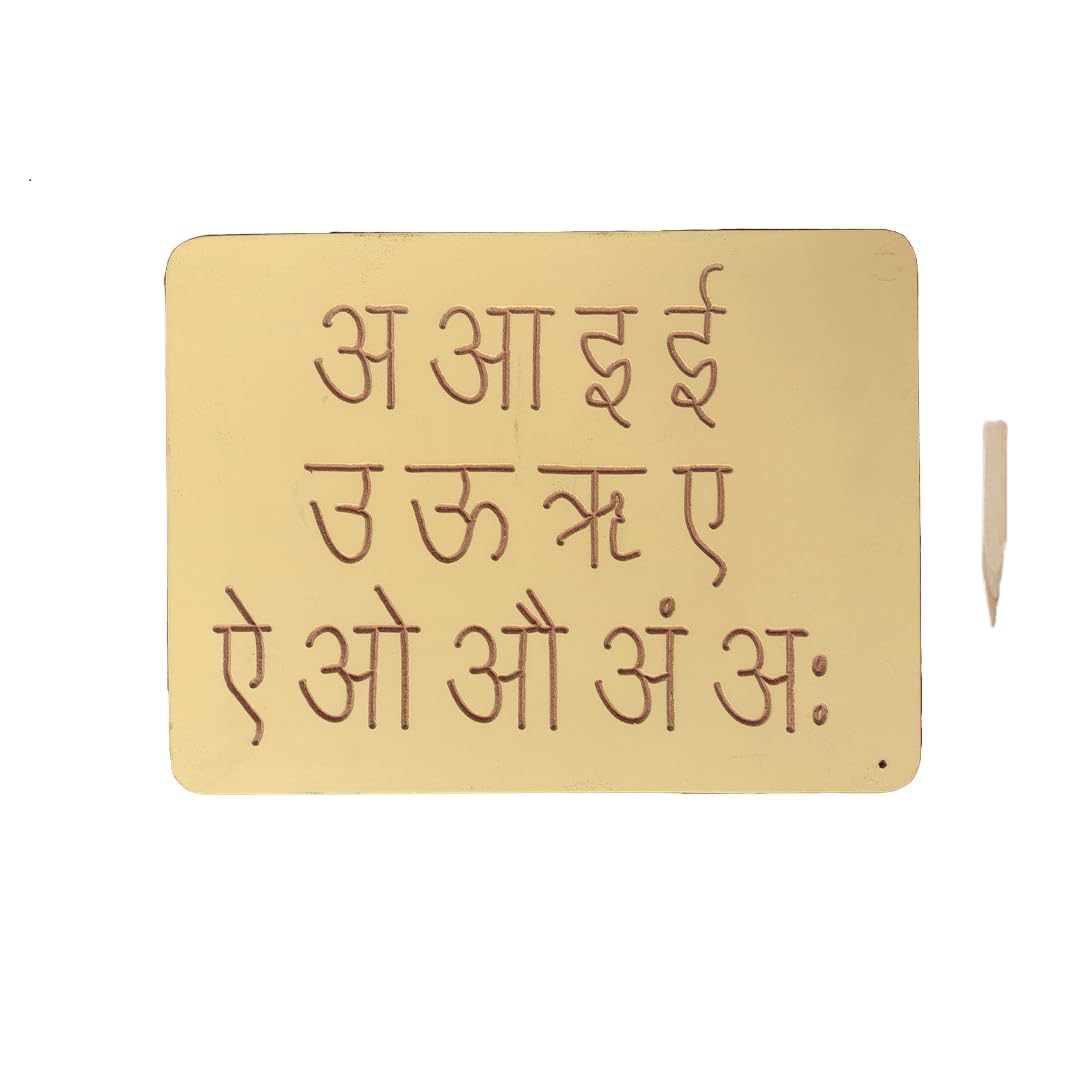 अ आ इ ई
उ ऊ ऋ ए
ऐ ओ औ अं अः